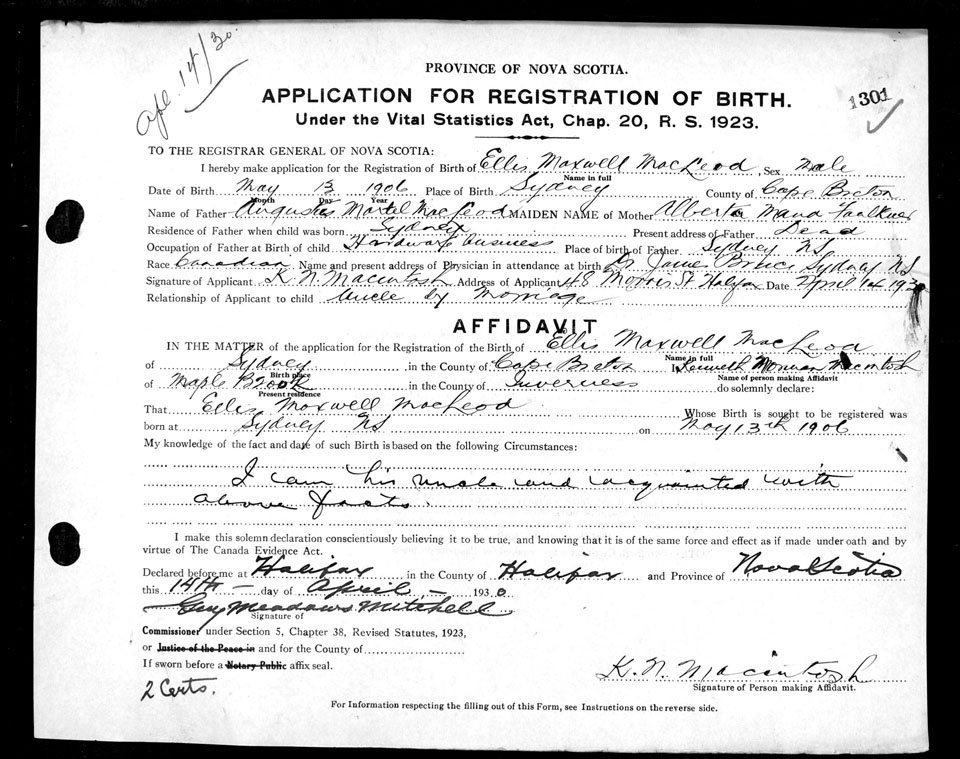 Apl. 14/30.
PROVINCE OF NOVA SCOTIA.
APPLICATION FOR REGISTRATION OF BIRTH.
1301
Under the Vital Statistics Act, Chap. 20, R. S. 1923.
TO THE REGISTRAR GENERAL OF NOVA SCOTIA:
I hereby make application for the Registration of Birth of Ellis Maxwell MacLeod Sex Male
Name in full
Date of Birth May 13 1906 Place of Birth Sydney County of Cape Breton
Month Day Year
Name of Father Angus Martel MacLeod MAIDEN NAME of Mother Alberta Maud Faulkner
Residence of Father when child was born Sydney Present address of Father Dead
Occupation of Father at Birth of child Hardware business Place of birth of Father Sydney NS
Race Canadian Name and present address of Physician in attendance at birth Dr James Bruce Sydney NS
Signature of Applicant K N Macintosh Address of Applicant 48 Morris St Halifax Date April 14 1930
Relationship of Applicant to child Uncle by Marriage
AFFIDAVIT
IN THE MATTER of the application for the Registration of the Birth of Ellis Maxwell MacLeod
Name in full
of Sydney in the County of Cape Breton I, Kenneth Norman Macintosh
Birth place Name of person making Affidavit
of Maple Brook in the County of Inverness do solemnly declare:
Present residence
That Ellis Maxwell MacLeod Whose Birth is sought to be registered was
born at Sydney NS on May 13th 1906
My knowledge of the fact and date of such Birth is based on the following Circumstances:
I am his uncle and acquainted with
above facts.
I make this solemn declaration conscientiously believing it to be true, and knowing that it is of the same force and effect as if made under oath and by
virtue of The Canada Evidence Act.
Declared before me at Halifax in the County of Halifax and Province of Nova Scotia
this 14th - day of April - 1930
Guy Meadows Mitchell
Signature of
Commissioner under Section 5, Chapter 38, Revised Statutes, 1923,
or Justice of the Peace in and for the County of
If sworn before a Notary Public affix seal.
K. N. Macintosh
Signature of Person making Affidavit.
2 Certs.
For Information respecting the filling out of this Form, see Instructions on the reverse side.